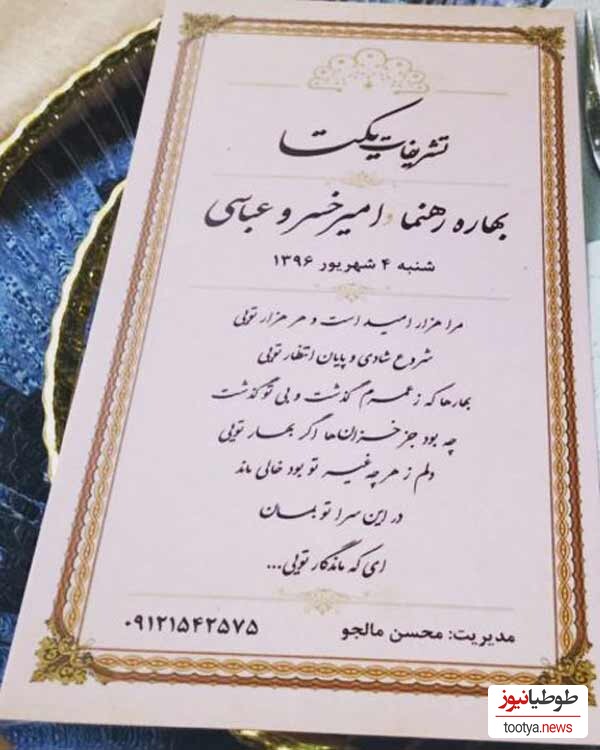 تشریفات یکتا
بهاره رهنما و امیرخسرو عباسی
شنبه ۴ شهریور ۱۳۹۶
مرا هزار امید است و هر هزار تویی
شروع شادی و پایان انتظار تویی
بهارها که ز عمرم گذشت و بی تو گذشت
چه بود جز خزان‌ها اگر بهار تویی
دلم ز هر چه غیر تو بود خالی ماند
در این سرا تو بمان
ای که ماندگار تویی...
مدیریت: محسن مالجو ۰۹۱۲۱۵۴۲۵۷۵
طوطیانیوز
tootya.news